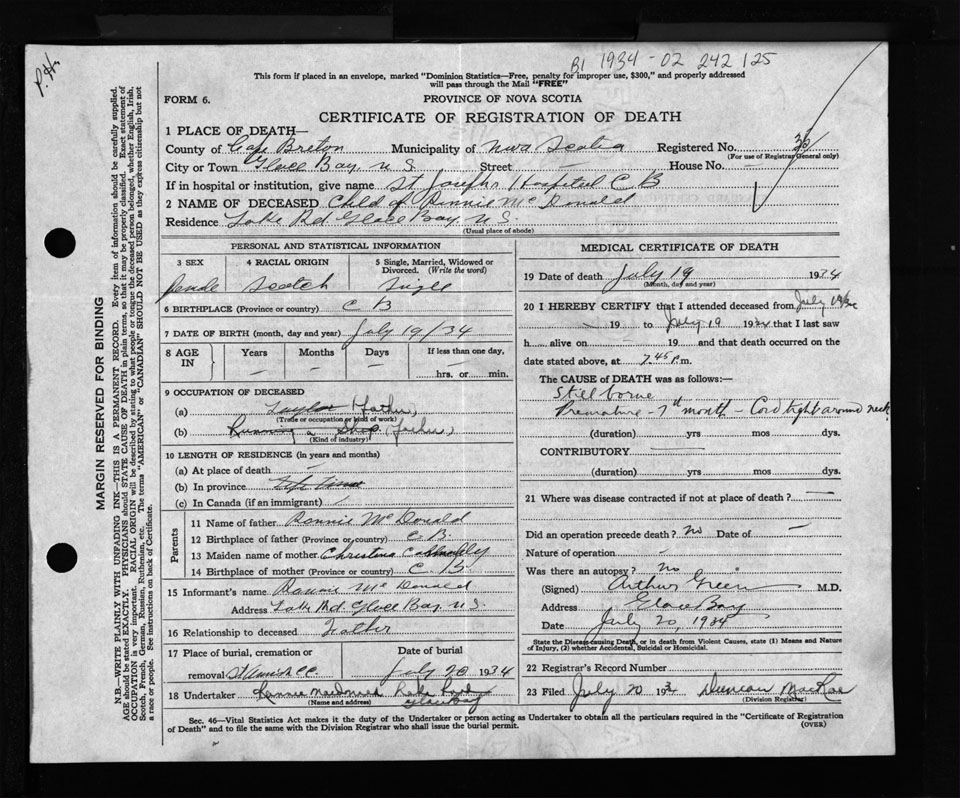 P. H.
B1 1934-02 242125
This form if placed in an envelope, marked "Dominion Statistics—Free, penalty for improper use, $300," and properly addressed
will pass through the Mail "FREE"
FORM 6.
PROVINCE OF NOVA SCOTIA
CERTIFICATE OF REGISTRATION OF DEATH
1 PLACE OF DEATH—
County of Cape Breton Municipality of Nova Scotia Registered No.
(For use of Registrar General only)
City or Town Glace Bay. N. S. Street House No.
If in hospital or institution, give name St Joseph Hospital C B
2 NAME OF DECEASED Child of Ronnie McDonald
Residence Lake Rd Glace Bay, N S.
(Usual place of abode)
MARGIN RESERVED FOR BINDING
N.B.—WRITE PLAINLY WITH UNFADING INK—THIS IS A PERMANENT RECORD. Every item of information should be carefully supplied.
AGE should be stated EXACTLY. PHYSICIANS should STATE CAUSE OF DEATH in plain terms, so that it may be properly classified. Exact statement of
OCCUPATION is very important. RACIAL ORIGIN will be described by stating to what people or tongue the deceased person belonged, whether English, Irish,
Scotch, French, German, Russian, Ruthenian, etc. The terms "AMERICAN" or "CANADIAN" SHOULD NOT BE USED as they express citizenship but not
a race or people. See instructions on back of Certificate.
PERSONAL AND STATISTICAL INFORMATION
3 SEX
4 RACIAL ORIGIN
5 Single, Married, Widowed or
Divorced. (Write the word)
Scotch Single
6 BIRTHPLACE (Province or country) C B
7 DATE OF BIRTH (month, day and year) July 19/34
8 AGE IN Years Months Days If less than one day,
— — — hrs. or min.
9 OCCUPATION OF DECEASED
(a) Taylor (Father)
(Trade or occupation or kind of work)
(b) Running a Shop (Father)
(Kind of industry)
10 LENGTH OF RESIDENCE (in years and months)
(a) At place of death —
(b) In province
(c) In Canada (if an immigrant) /
Parents
11 Name of father Ronnie McDonald
12 Birthplace of father (Province or country) C. B.
13 Maiden name of mother Christina
14 Birthplace of mother (Province or country) C B
15 Informant's name Ronnie McDonald
Address Lake Rd. Glace Bay. N S.
16 Relationship to deceased Father
17 Place of burial, cremation or Date of burial
removal July 20 1934
18 Undertaker Ronnie MacDonald Lake Road
(Name and address) Glace Bay
MEDICAL CERTIFICATE OF DEATH
19 Date of death July 19 1934
(Month, day and year)
20 I HEREBY CERTIFY that I attended deceased from July 19/34
— 19 to July 19 1934 that I last saw
h alive on — 19 and that death occurred on the
date stated above, at 7.45 P.m.
The CAUSE OF DEATH was as follows:—
Still borne
Premature - 7th month - Cord tight around neck
(duration) yrs mos dys.
CONTRIBUTORY —
(duration) yrs mos dys.
21 Where was disease contracted if not at place of death? —
Did an operation precede death? no Date of —
Nature of operation —
Was there an autopsy? No
(Signed) Arthur Green M.D.
Address Glace Bay
Date July 20, 1934
State the Disease causing Death, or in death from Violent Causes, state (1) Means and Nature
of Injury, and (2) whether Accidental, Suicidal or Homicidal.
22 Registrar's Record Number
23 Filed July 20 1934 Duncan MacRae
(Division Registrar)
Sec. 46—Vital Statistics Act makes it the duty of the Undertaker or person acting as Undertaker to obtain all the particulars required in the "Certificate of Registration
of Death" and to file the same with the Division Registrar who shall issue the burial permit.
(OVER)